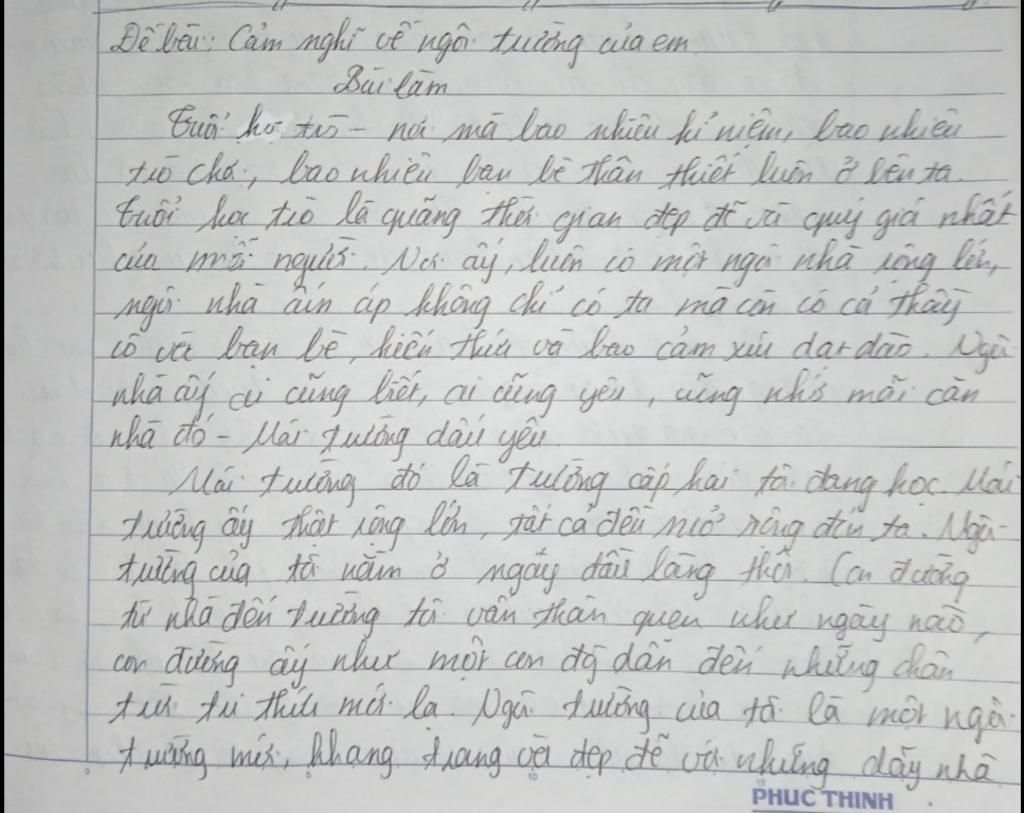 Đề bài: Cảm nghĩ về ngôi trường của em.
Bài làm
Tuổi học trò - nơi mà bao nhiêu kỉ niệm, bao nhiêu
trò chơi, bao nhiêu bạn bè thân thiết luôn ở bên ta.
Tuổi học trò là quãng thời gian đẹp đẽ và quý giá nhất
của mỗi người. Nơi ấy, luôn có một ngôi nhà rộng lớn,
ngôi nhà ấm áp không chỉ có ta mà còn có cả thầy
cô và bạn bè, kiến thức và bao cảm xúc dạt dào. Ngôi
nhà ấy ai cũng biết, ai cũng yêu, cũng nhớ mãi căn
nhà đó - Mái trường dấu yêu.
Mái trường đó là trường cấp hai tôi đang học. Mái
trường ấy thật rộng lớn, tất cả đều mở rộng đến ta. Ngôi
trường của tôi nằm ở ngay đầu làng thôi. Con đường
từ nhà đến trường tôi vẫn thân quen như ngày nào,
con đường ấy như một con đg dẫn đến những chân
trời tri thức mới lạ. Ngôi trường của tôi là một ngôi
trường mới, khang trang và đẹp đẽ với những dãy nhà
PHUC THINH